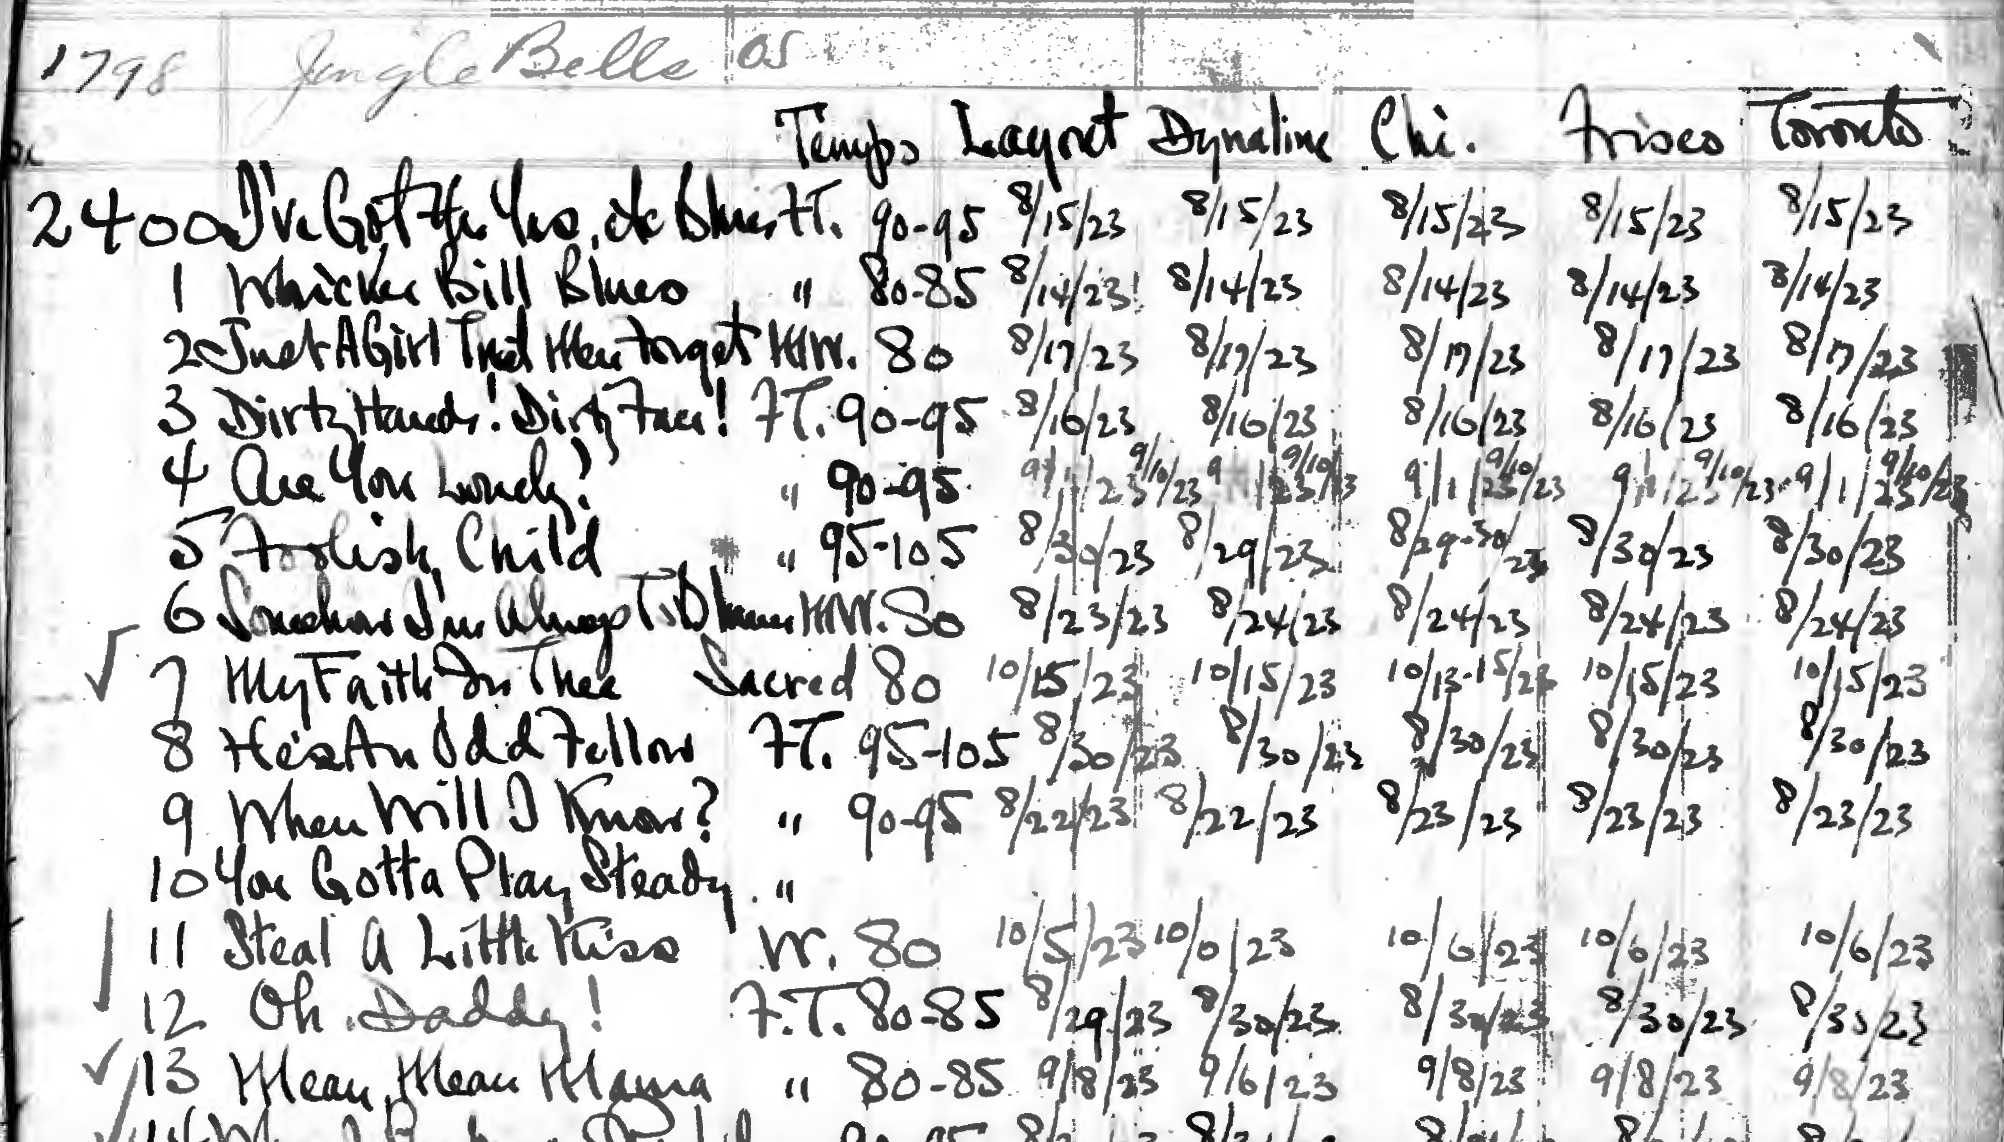 1798 Jingle Bells 05
Tempo Layout Dynaline Chi. Frisco Toronto
2400 I've Got the Yes, Blues F.T. 90-95 8/15/23 8/15/23 8/15/23 8/15/23 8/15/23
1 Whicker Bill Blues " 80-85 8/14/23 8/14/23 8/14/23 8/14/23 8/14/23
2 Just A Girl That Men Forget HW. 80 8/17/23 8/17/23 8/17/23 8/17/23 8/17/23
3 Dirty Hands! Dirty Face! F.T. 90-95 8/16/23 8/16/23 8/16/23 8/16/23 8/16/23
4 Are You Lonely? " 90-95 9/1/23 9/10/23 9/1/23 9/10/23 9/1/23 9/10/23 9/1/23 9/10/23 9/1/23 9/10/23
5 Foolish Child " 95-105 8/30/23 8/29/23 8/29-30/23 8/30/23 8/30/23
6 Somehow I'm Always To Blame HW. 80 8/23/23 8/24/23 8/24/23 8/24/23 8/24/23
7 My Faith In Thee Sacred 80 10/15/23 10/15/23 10/13-15/23 10/15/23 10/15/23
8 He's An Odd Fellow F.T. 95-105 8/30/23 8/30/23 8/30/23 8/30/23 8/30/23
9 When Will I Know? " 90-95 8/22/23 8/22/23 8/23/23 8/23/23 8/23/23
10 You Gotta Play Steady "
11 Steal A Little Kiss W. 80 10/5/23 10/6/23 10/6/23 10/6/23 10/6/23
12 Oh Daddy! F.T. 80-85 8/29/23 8/30/23 8/30/23 8/30/23 8/30/23
13 Mean, Mean Mama " 80-85 9/8/23 9/6/23 9/8/23 9/8/23 9/8/23